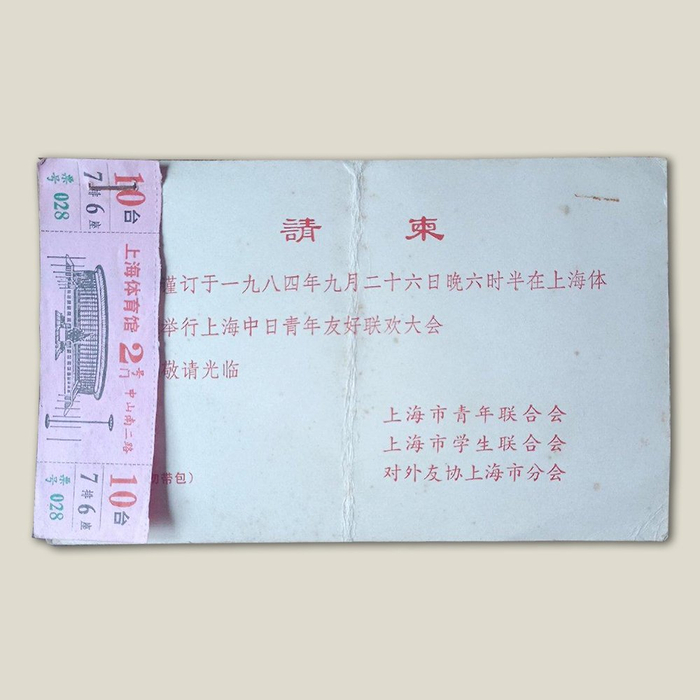 請 柬
谨订于一九八四年九月二十六日晚六时半在上海体
举行上海中日青年友好联欢大会
敬请光临
上海市青年联合会
上海市学生联合会
对外友协上海市分会
带包）
10台
7排6座
票号 028
上海体育馆
2号门
中山南二路
10台
7排6座
票号 028